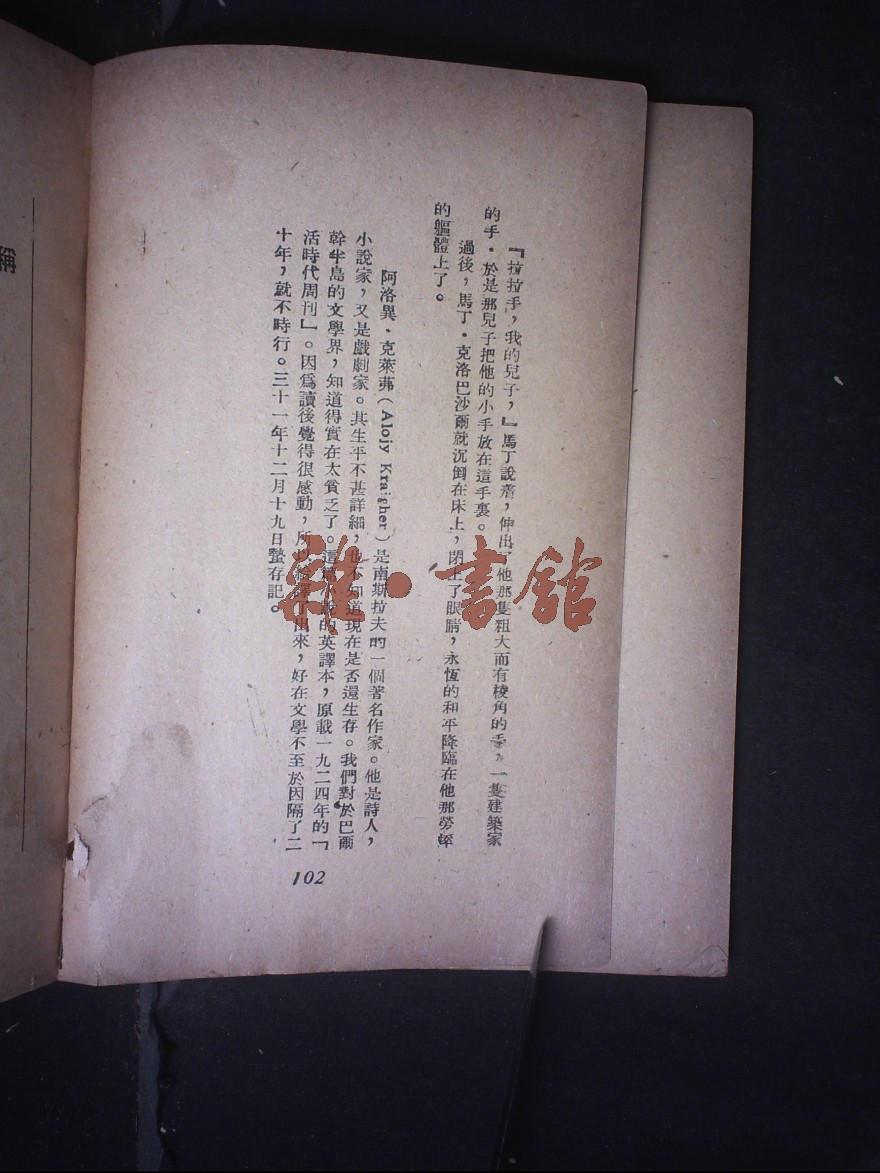 『拉拉手，我的兒子，』馬丁說着，伸出了他那隻粗大而有棱角的手，一隻建築家
的手。於是那兒子把他的小手放在這手裏。
過後，馬丁·克洛巴沙爾就沉倒在床上，閉上了眼睛，永恆的和平降臨在他那勞瘁
的軀體上了。
阿洛異·克萊弗（Alojy Kraigher）是南斯拉夫的一個著名作家。他是詩人，
小說家，又是戲劇家。其生平不甚詳細，也不知道現在是否還生存。我們對於巴爾
幹半島的文學界，知道得實在太貧乏了。這篇小說的英譯本，原載一九二四年的『
活時代周刊』。因爲讀後覺得很感動，所以給譯了出來，好在文學不至於因隔了二
十年，就不時行。三十一年十二月十九日蟄存記。
102
雜·書館